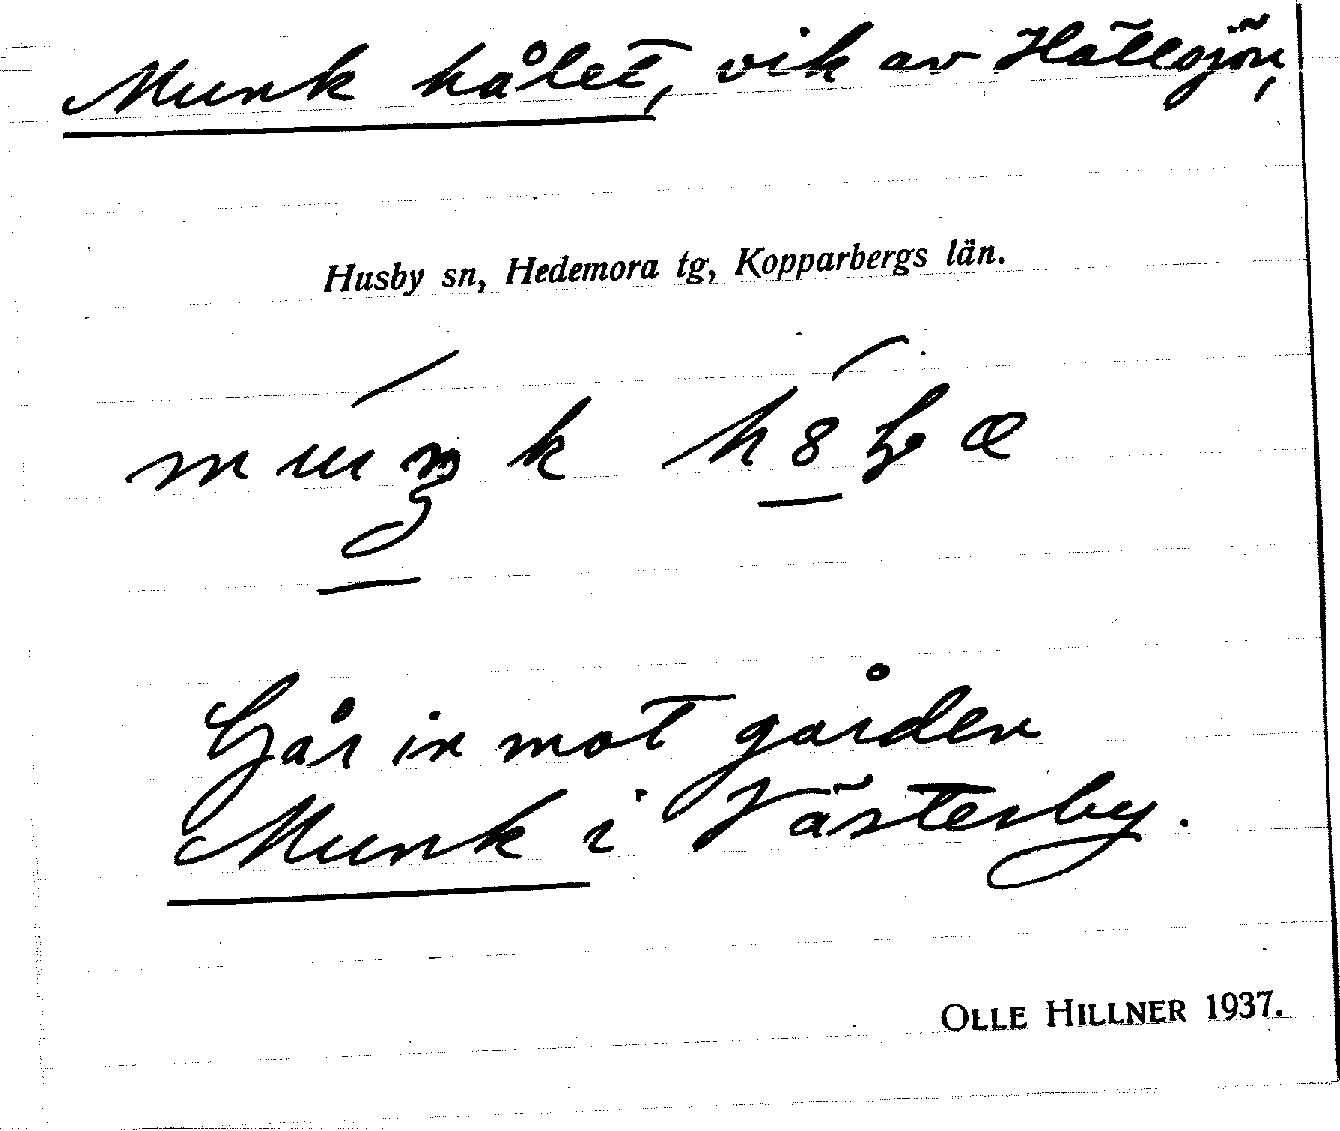 Munkhålet, vik av Hällsjön,
Husby sn, Hedemora tg, Kopparbergs län.
Går in mot gården
Munk i Västerby.
OLLE HILLNER 1937.